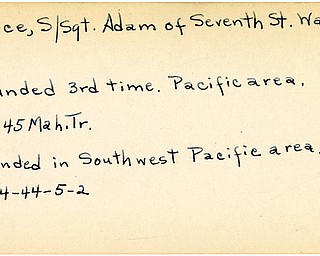 ce, S/Sgt. Adam of Seventh St. Wa
unded 3rd time. Pacific area.
45 Mah. Tr.
nded in Southwest Pacific area.
4-44-5-2